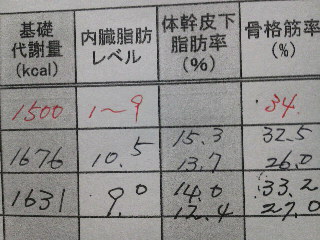 基礎代謝量(kcal) 内臓脂肪レベル 体幹皮下脂肪率(%) 骨格筋率(%)
1500 1〜9 34
15.3 32.5
1676 10.5 13.7 26.0
14.0 33.2
1631 9.0 12.4 27.0